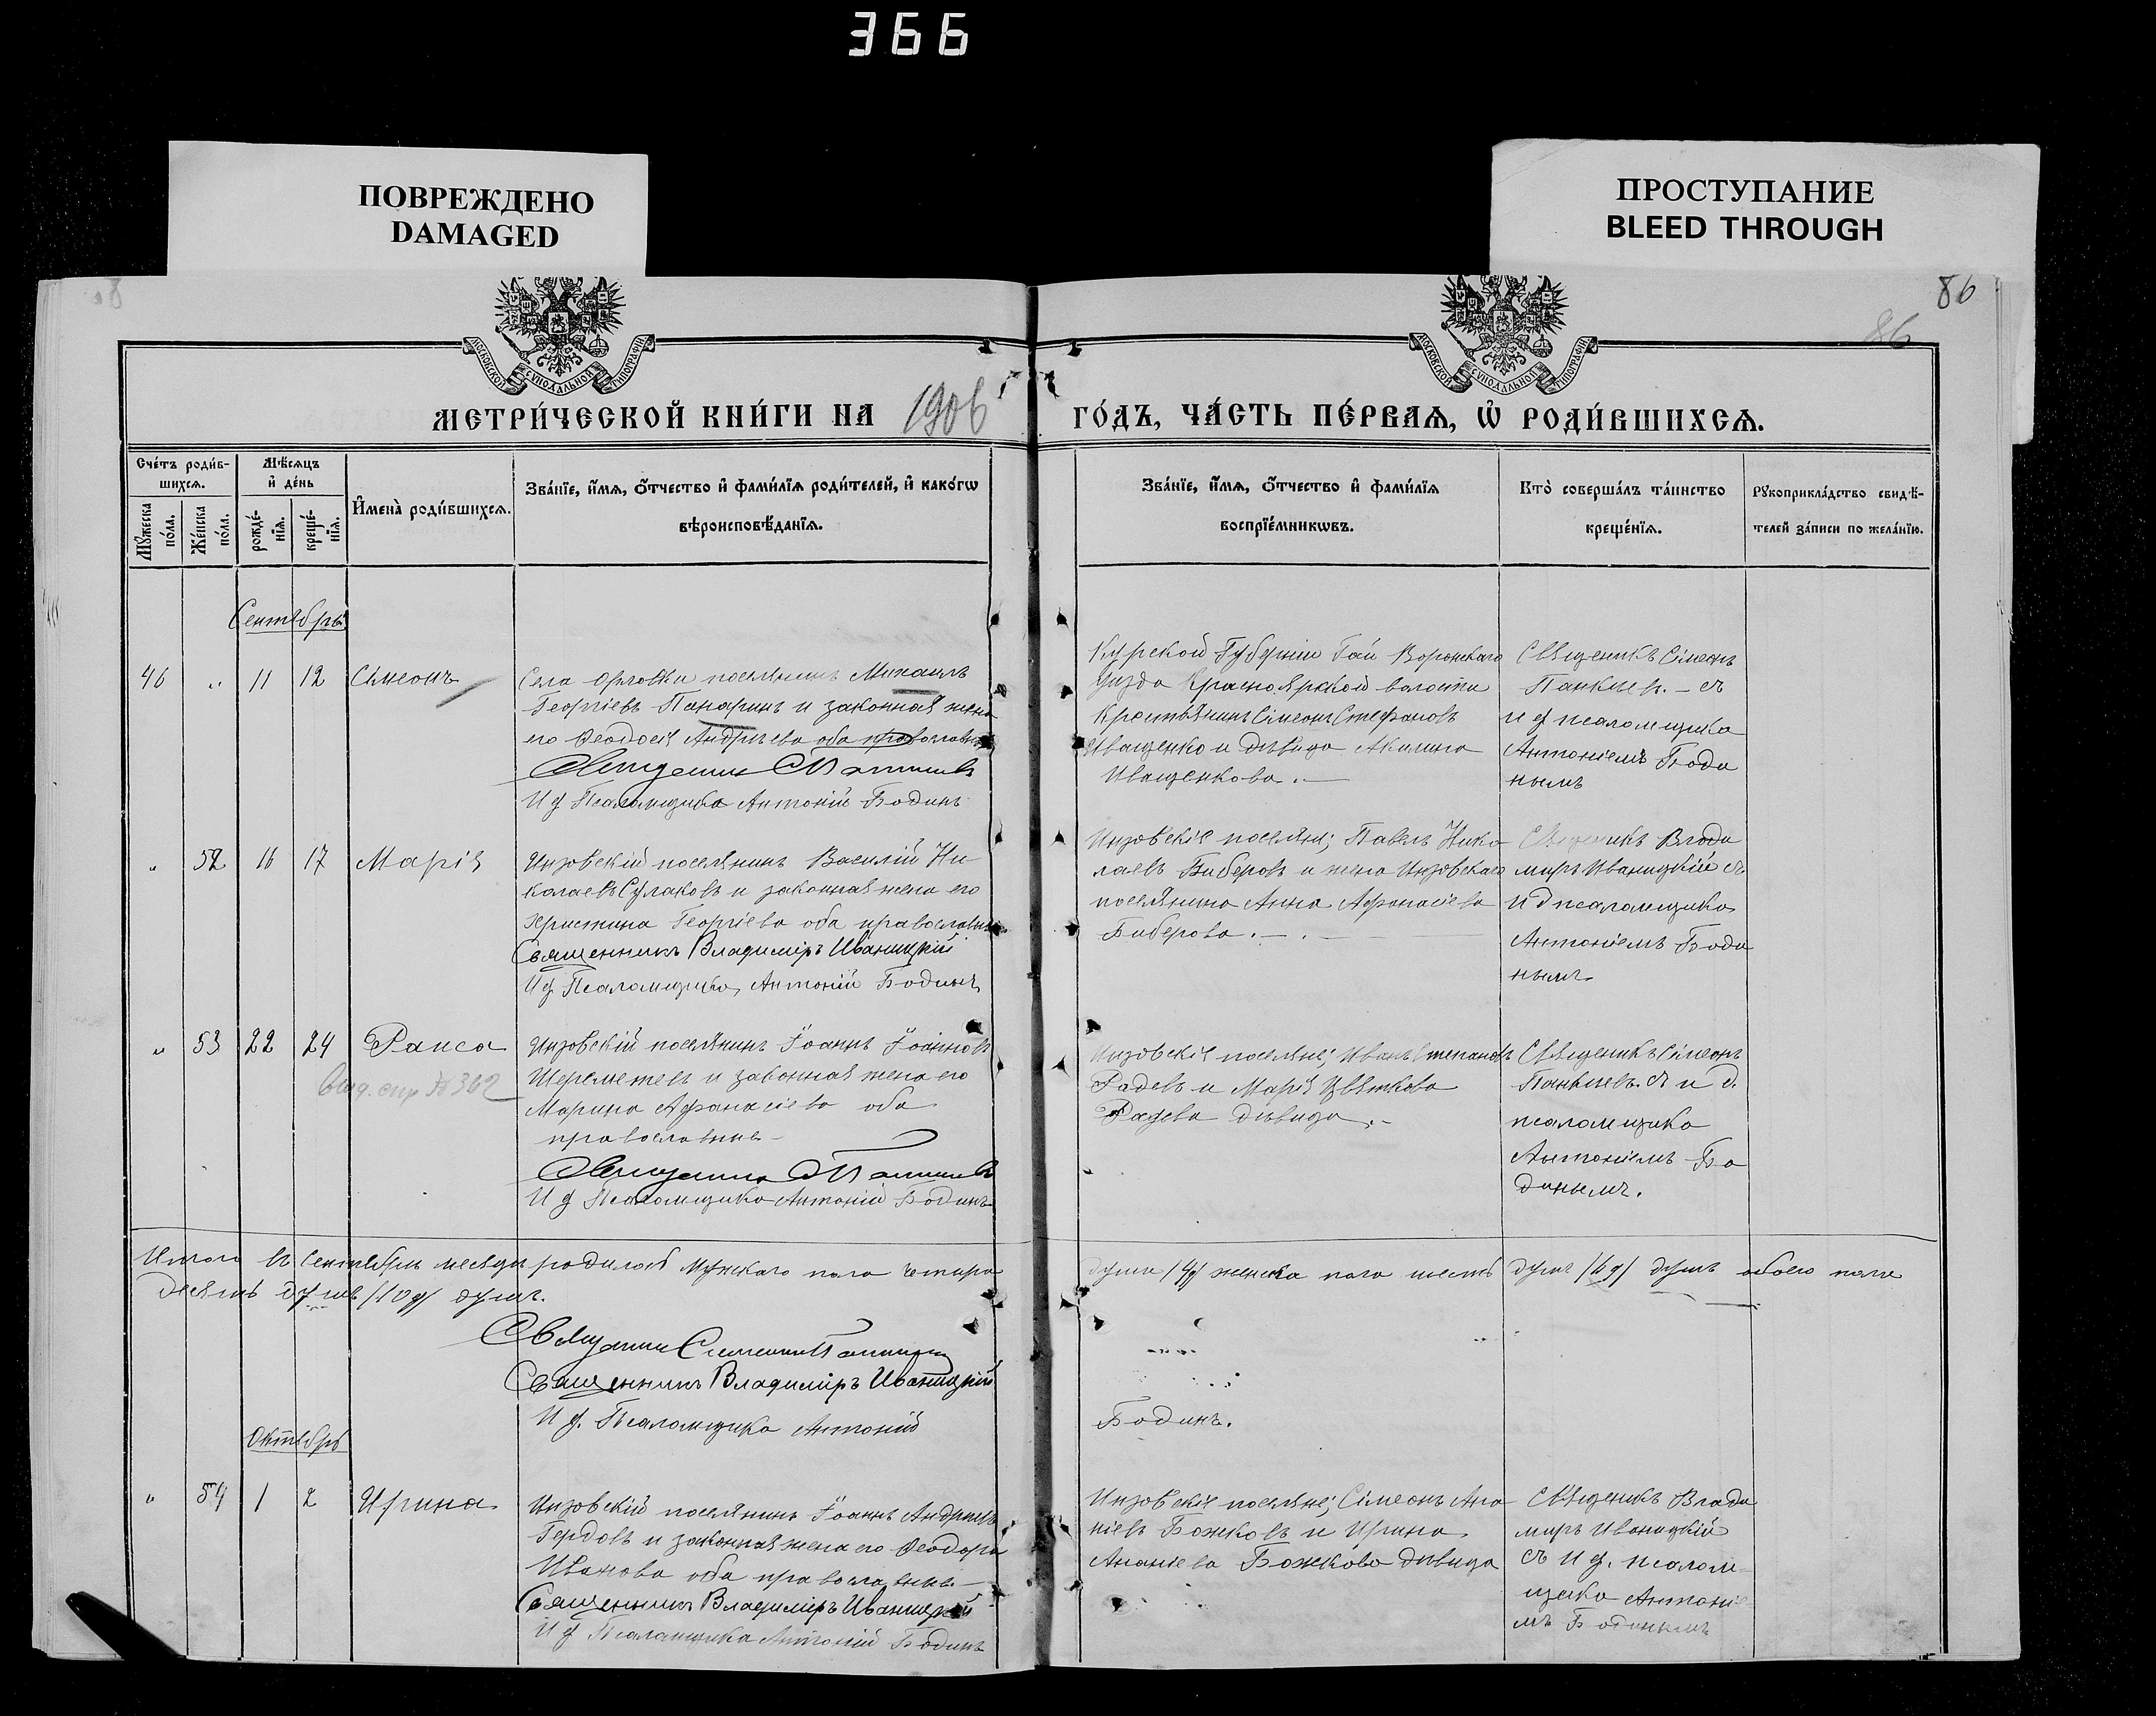 366
ПОВРЕЖДЕНО
DAMAGED
ПРОСТУПАНИЕ
BLEED THROUGH
86
86
МОСКОВСКОЙ СѴНОДАЛЬНОЙ ТИПОГРАФІИ
МОСКОВСКОЙ СѴНОДАЛЬНОЙ ТИПОГРАФІИ
МЕТРИ́ЧЕСКОЙ КНИ́ГИ НА 1906 ГО́ДЪ, ЧА́СТЬ ПЕ́РВАѦ, Ѡ РОДИ́ВШИХСѦ.
Сче́тъ роди́в-
шихсѧ.
Мꙋжеска по́ла.
Же́нска по́ла.
Мѣ́сѧцъ
и де́нь
рожде́-
нїѧ.
креще́-
нїѧ.
И҆мена̀ роди́вшихсѧ.
Зва́нїе, и҆́мѧ, о҆́тчество и҆ фами́лїѧ роди́телей, и҆ како́гѡ
вѣроисповѣ́данїѧ.
Зва́нїе, и҆́мѧ, о҆́тчество и҆ фами́лїѧ
воспрїе́мникѡвъ.
Кто̀ соверша́лъ та́инство
креще́нїѧ.
Рꙋкоприкла́дство свидѣ́-
телей за́писи по жела́нїю.
Сентябрь
46 " 11 12 Симеонъ
Села Орловки поселянинъ Михаилъ
Георгіевъ Понаринъ и законная жена
его Феодосія Андреева оба православные
И д Псаломщика Антоній Бодинъ
Курской Губерніи Гай Воронскаго
Уѣзда Красноярской волости
Крестьянинъ Сімеонъ Стефановъ
Иващенко и дѣвица Акилина
Иващенкова.
Священникъ Сімеонъ
Панкѣев. – съ
и д псаломщика
Антоніемъ Боди
нымъ
" 52 16 17 Марія
Инзовскій поселянинъ Василій Ни-
колаевъ Сулаковъ и законная жена его
Христина Георгіева оба православные
Священникъ Владиміръ Иваницкій
И д Псаломщика, Антоній Бодинъ
Инзовскіе поселяне; Павелъ Нико
лаевъ Биберовъ и жена Инзовскаго
поселянина Анна Афанасіева
Биберова. –
Священникъ Влади
миръ Иваницкій съ
И д псаломщика
Антоніемъ Боди
нымъ
" 53 22 24 Раиса
выд. спр № 362
Инзовскій поселянинъ Іоаннъ Іоанновъ
Шереметевъ и законная жена его
Марина Афанасіева оба
православные
И д Псаломщика Антоній Бодинъ
Инзовскіе поселяне; Иванъ Степановъ
Радевъ и Марія Цвяткова
Радева дѣвица. –
Священникъ Сімеонъ
Панкѣевъ. съ и д.
псаломщика
Антоніемъ Бо
динымъ.
Итого въ Сентябрѣ месяцѣ родилось Мужскаго пола четыре души /4/ женска пола шесть душъ /6/ душъ обоего пола
десять душъ /10/ душъ.
Священникъ Владиміръ Иваницкій
И д. Псаломщика Антоній Бодинъ.
Октябрь
" 54 1 2 Ирина
Инзовскій поселянинъ Іоаннъ Андреевъ
Гердовъ и законная жена его Феодора
Иванова оба православные –
Священникъ Владиміръ Иваницкій
И д Псаломщика Антоній Бодинъ
Инзовскіе поселяне; Сімеонъ Ана
ніевъ Божковъ и Ирина
Ананіева Божкова дѣвица
Священникъ Влади
миръ Иваницкій
съ И д. псалом-
щика Антоніе
мъ Бодинымъ